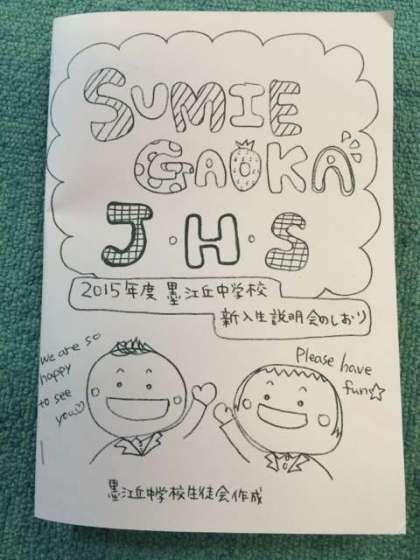 SUMIE
GAOKA
J・H・S
2015年度 墨江丘中学校
新入生説明会のしおり
we are so
happy
to see
you
Please have
fun☆
墨江丘中学校生徒会作成